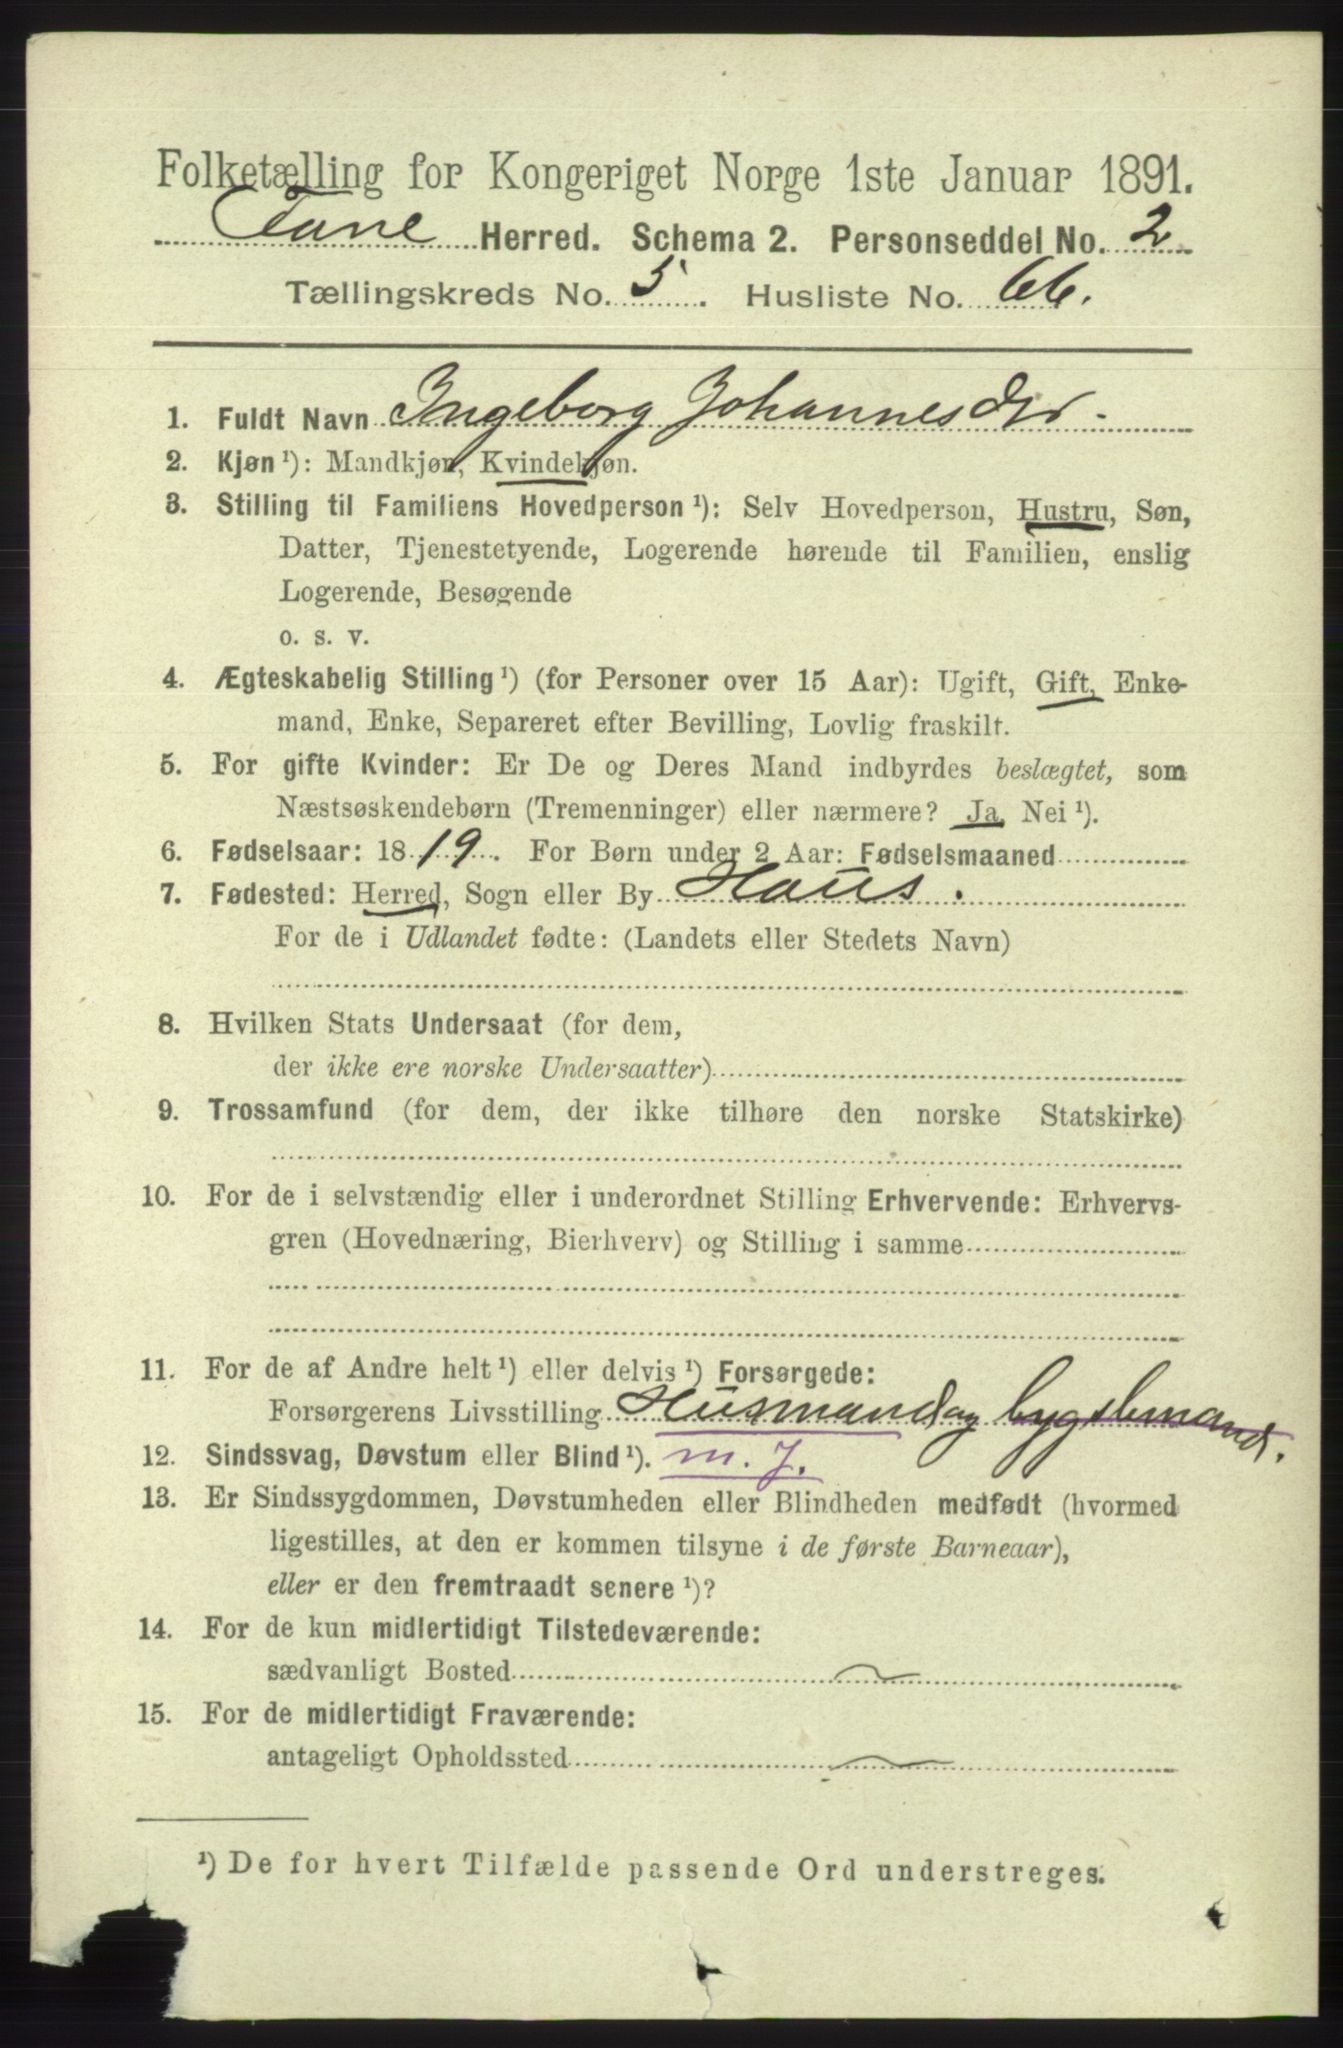 Folketælling for Kongeriget Norge 1ste Januar 1891.
Fane Herred. Schema 2. Personseddel No. 2
Tællingskreds No. 5. Husliste No. 66.
1. Fuldt Navn Ingeborg Johannesdtr.
2. Kjøn¹): Mandkjøn, Kvindekjøn.
3. Stilling til Familiens Hovedperson¹): Selv Hovedperson, Hustru, Søn,
Datter, Tjenestetyende, Logerende hørende til Familien, enslig
Logerende, Besøgende
o. s. v.
4. Ægteskabelig Stilling¹) (for Personer over 15 Aar): Ugift, Gift, Enke-
mand, Enke, Separeret efter Bevilling, Lovlig fraskilt.
5. For gifte Kvinder: Er De og Deres Mand indbyrdes beslægtet, som
Næstsøskendebørn (Tremenninger) eller nærmere? Ja, Nei¹).
6. Fødselsaar: 1819. For Børn under 2 Aar: Fødselsmaaned
7. Fødested: Herred, Sogn eller By Haus.
For de i Udlandet fødte: (Landets eller Stedets Navn)
8. Hvilken Stats Undersaat (for dem,
der ikke ere norske Undersaatter)
9. Trossamfund (for dem, der ikke tilhøre den norske Statskirke)
10. For de i selvstændig eller i underordnet Stilling Erhvervende: Erhvervs-
gren (Hovednæring, Bierhverv) og Stilling i samme
11. For de af Andre helt¹) eller delvis¹) Forsørgede:
Forsørgerens Livsstilling Husmand og bygslmand.
12. Sindssvag, Døvstum eller Blind¹). m. J.
13. Er Sindssygdommen, Døvstumheden eller Blindheden medfødt (hvormed
ligestilles, at den er kommen tilsyne i de første Barneaar),
eller er den fremtraadt senere¹)?
14. For de kun midlertidigt Tilstedeværende:
sædvanligt Bosted
15. For de midlertidigt Fraværende:
antageligt Opholdssted
¹) De for hvert Tilfælde passende Ord understreges.